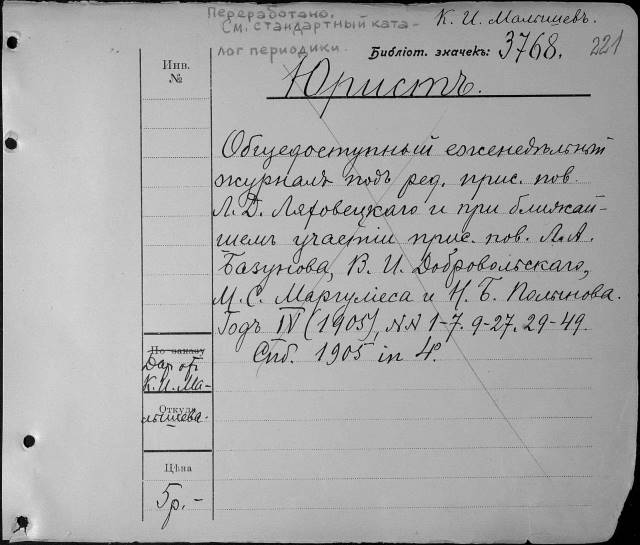 Переработано.
См. стандартный ката-
лог периодики.
К. И. Малышевъ.
Библіот. значекъ: 3768.
221
Инв.
№
Юристъ.
Общедоступный еженедѣльный
журналъ подъ ред. прис. пов.
Л. Д. Ляховецкаго и при ближай-
шемъ участіи прис. пов. Л. А.
Базунова, В. И. Добровольскаго,
М. С. Маргуліеса и Н. Б. Полынова.
Годъ IV (1905), NN 1-7. 9-27. 29-49.
Спб. 1905 in 4º.
По заказу
Дар от
К. И. Ма-
Откуда
лышева.
Цѣна
5 р. -